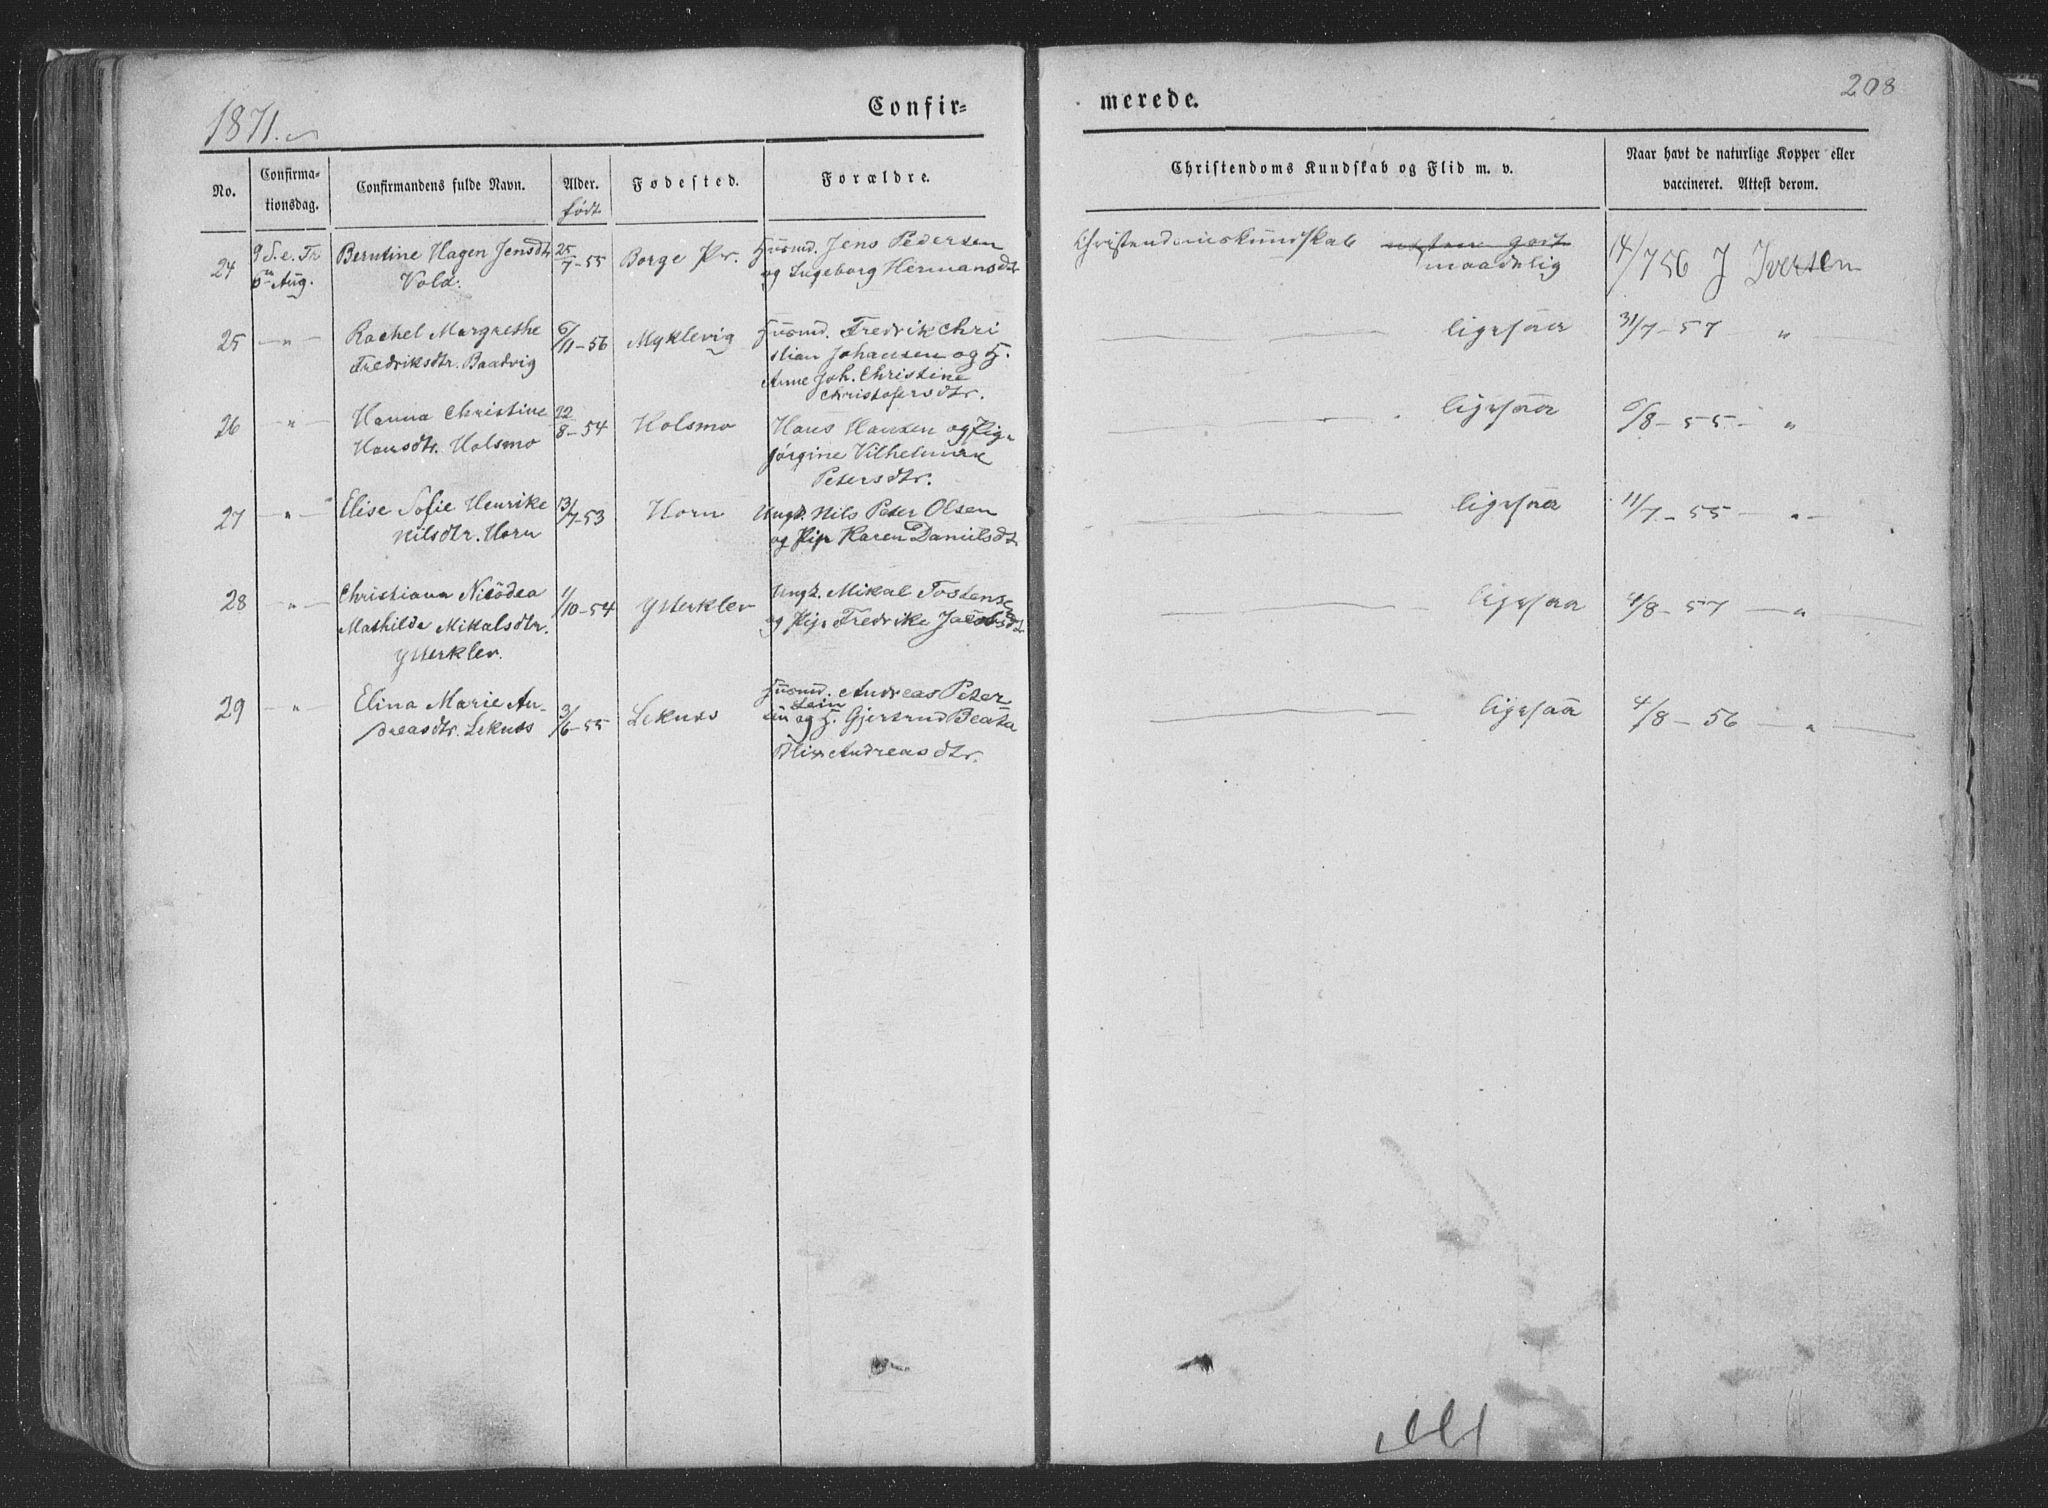 1871.
Confir=
merede.
208
No.
Confirma-
tionsdag.
Confirmandens fulde Navn.
Alder.
født
Fødested.
Forældre.
Christendoms Kundskab og Flid m. v.
Naar havt de naturlige Kopper eller
vaccineret. Attest derom.
24
9 S. e. Tr
6te Aug.
Berntine Hagen Jensdtr
Vold.
25/7-55
Borge Pr.
Husmd. Jens Pedersen
og Ingeborg Hermansdtr
Christendomskundskab næsten godt
maadelig
14/7 56 J Iversen
25
— " —
Rachel Margrethe
Fredriksdtr. Baadvig
6/11-56
Myklevig
Husmd. Fredrik Chri
stian Johansen og H.
Anne Joh. Christine
Christofersdtr.
ligesaa
31/7-57 "
26
— " —
Hanna Christine
Hansdtr. Holsmo
22/8-54
Holsmo
Hans Hansen og Pig.
Jørgine Vilhelmine
Petersdtr.
ligesaa
6/8-55- "
27
— " —
Elise Sofie Henrike
Nilsdtr. Horn
13/7-53
Horn
Ungk. Nils Peter Olsen
og Pige Karen Danielsdt
ligesaa
11/7-55 — " —
28
— " —
Christiana Nicodea
Mathilde Mikalsdtr.
Ysterklev.
1/10-54
Ysterklev
Ungk. Mikal Tostensen
og Pige Fredrike Jacobsdtr
ligesaa
4/8-57 — "
29
— " —
Elina Marie An-
dreasdtr. Leknes
3/6-55
Leknes
Husmd. Andreas Peter
Lein
og H. Gjertrud Beata
Blix Andreasdtr.
ligesaa
4/8-56 — " —